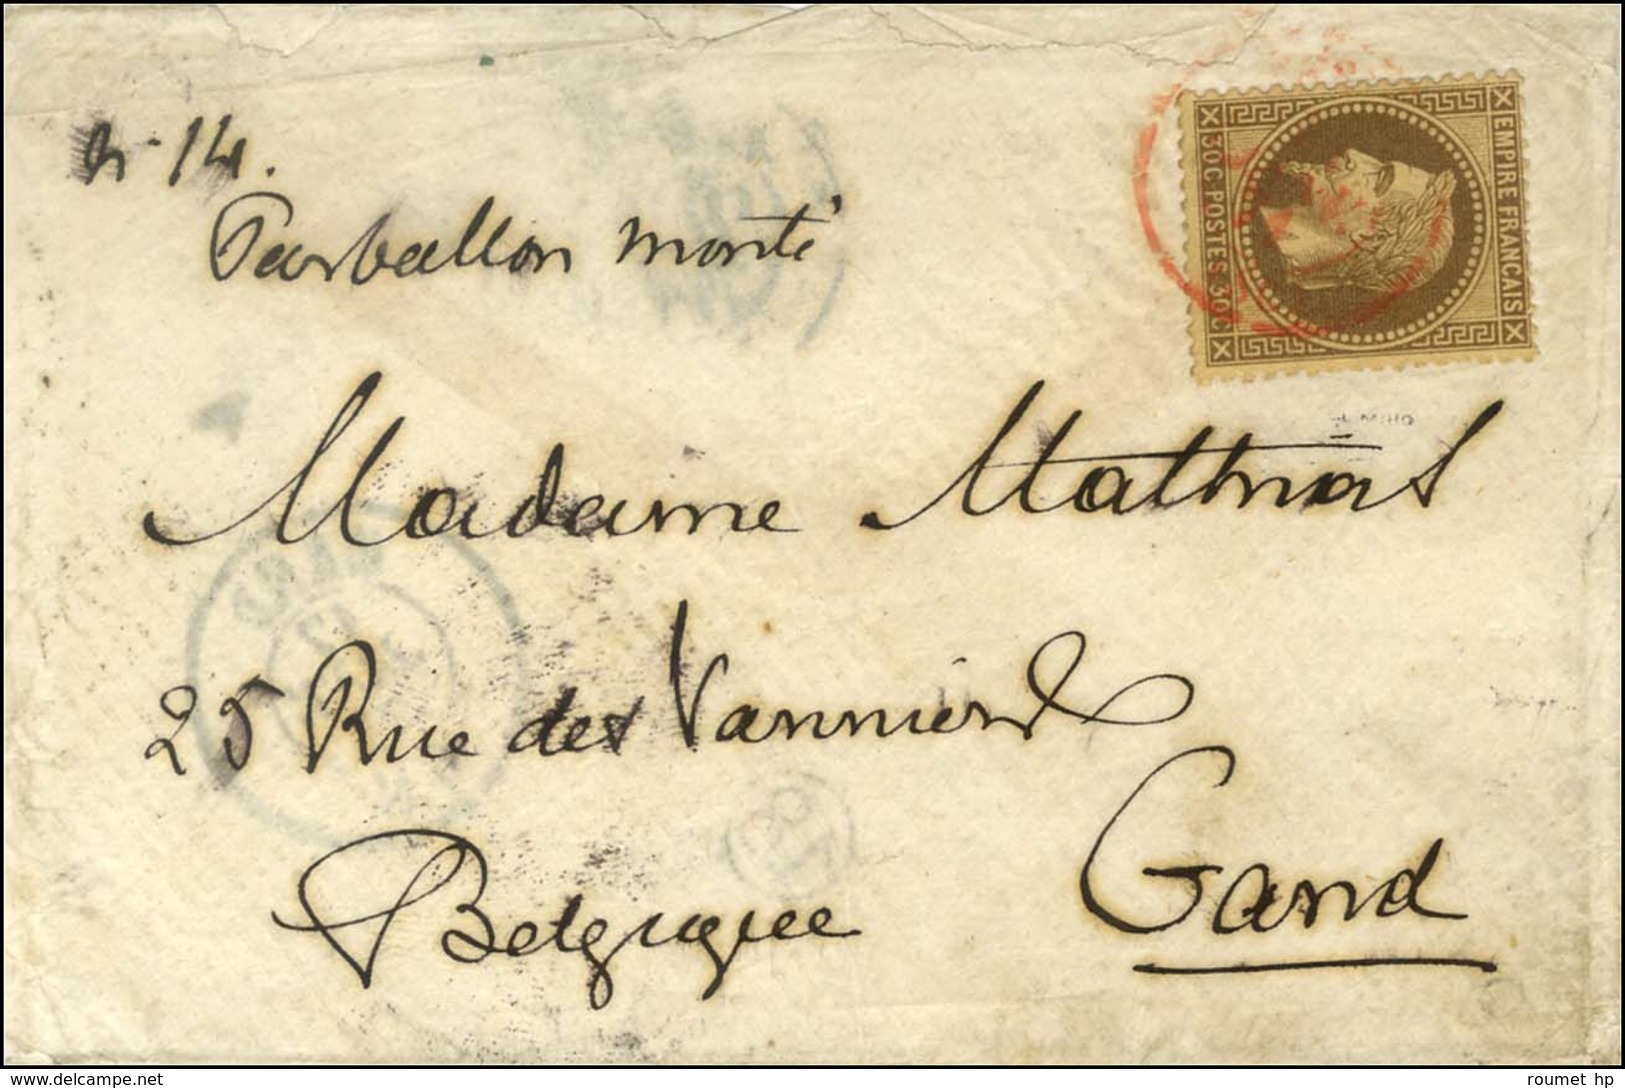 n° 14.
Par ballon monté
EMPIRE FRANCAIS
30C POSTES 30C
Madame Mathias
25 Rue des Vanniers
Gand
Belgique
www.delcampe.net
roumet hp